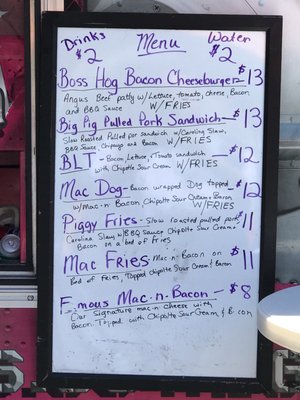 Drinks Menu Water
$2 $2
Boss Hog Bacon Cheeseburger $13
Angus Beef patty w/Lettuce, tomato, cheese, Bacon
and BBQ Sauce W/FRIES
Big Pig Pulled Pork Sandwich - $13
Slow Roasted Pulled pork Sandwich w/Carolina Slaw,
BBQ Sauce, Chipoys and Bacon W/FRIES
BLT - Bacon, Lettuce, Tomato sandwich $12
with Chipotle Sour Cream W/FRIES
Mac Dog - Bacon wrapped Dog topped $12
w/Mac-n-Bacon, Chipotle Sour Cream & Bacon
W/FRIES
Piggy Fries - Slow roasted pulled pork $11
Carolina Slaw w/BBQ Sauce Chipotle Sour Cream &
Bacon on a bed of fries
Mac Fries Mac-n-Bacon on $11
Bed of Fries, Topped Chipotle Sour Cream & Bacon
Famous Mac-n-Bacon - $8
Our signature mac-n cheese with
Bacon. Topped with Chipotle Sour Cream & Bacon